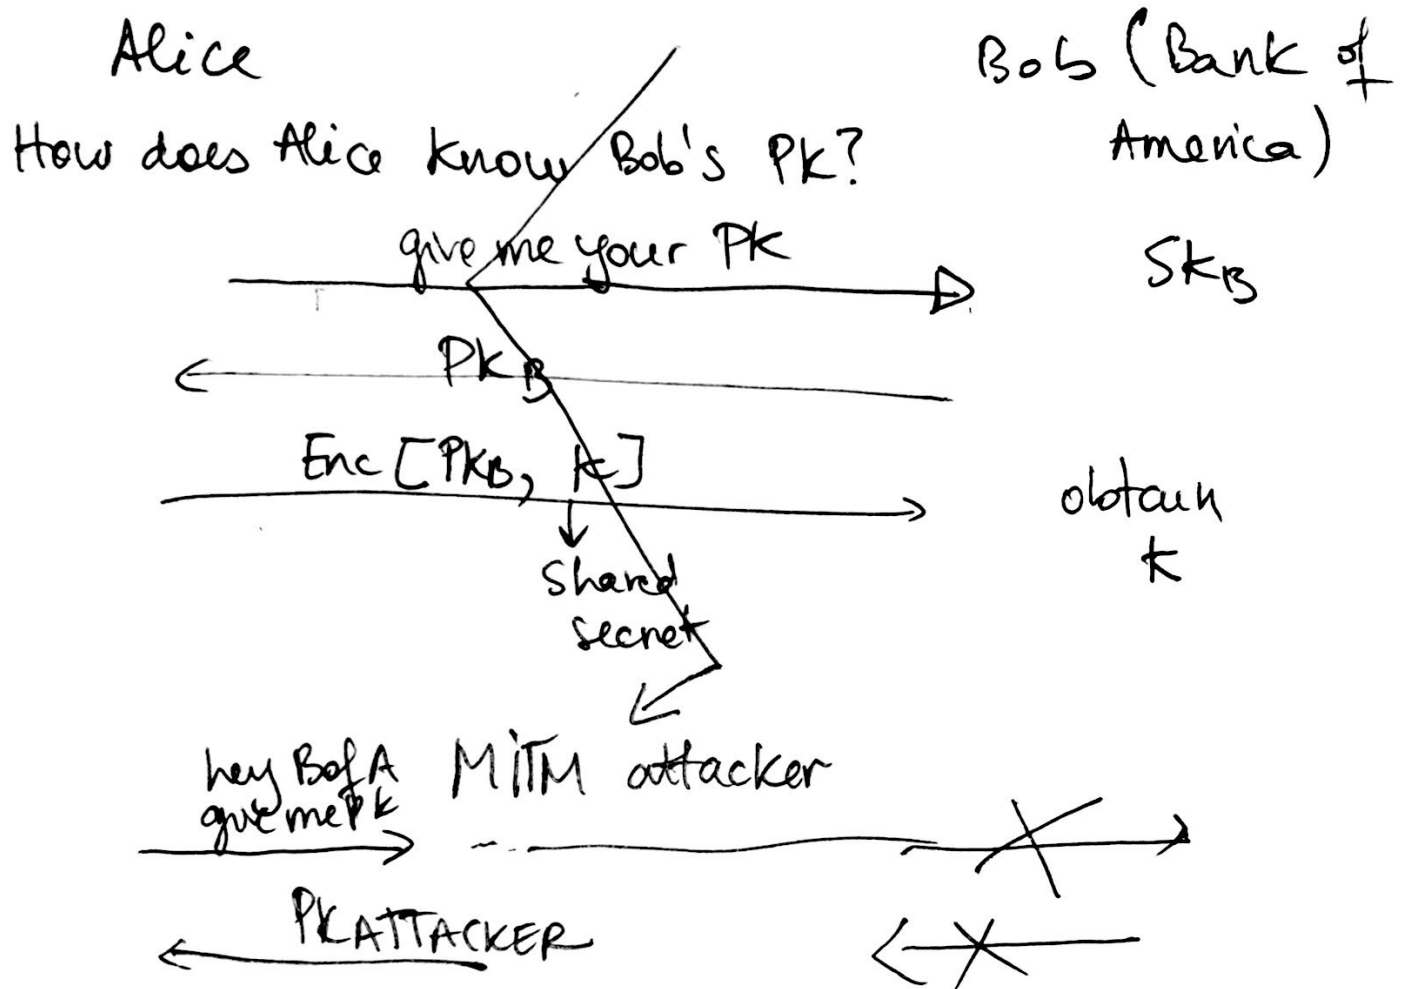 Alice
Bob (Bank of
America)
How does Alice know Bob's PK?
give me your PK
SKB
PKB
Enc [PKB, K]
obtain
k
shared
secret
hey BofA
give me PK
MiTM attacker
PKATTACKER